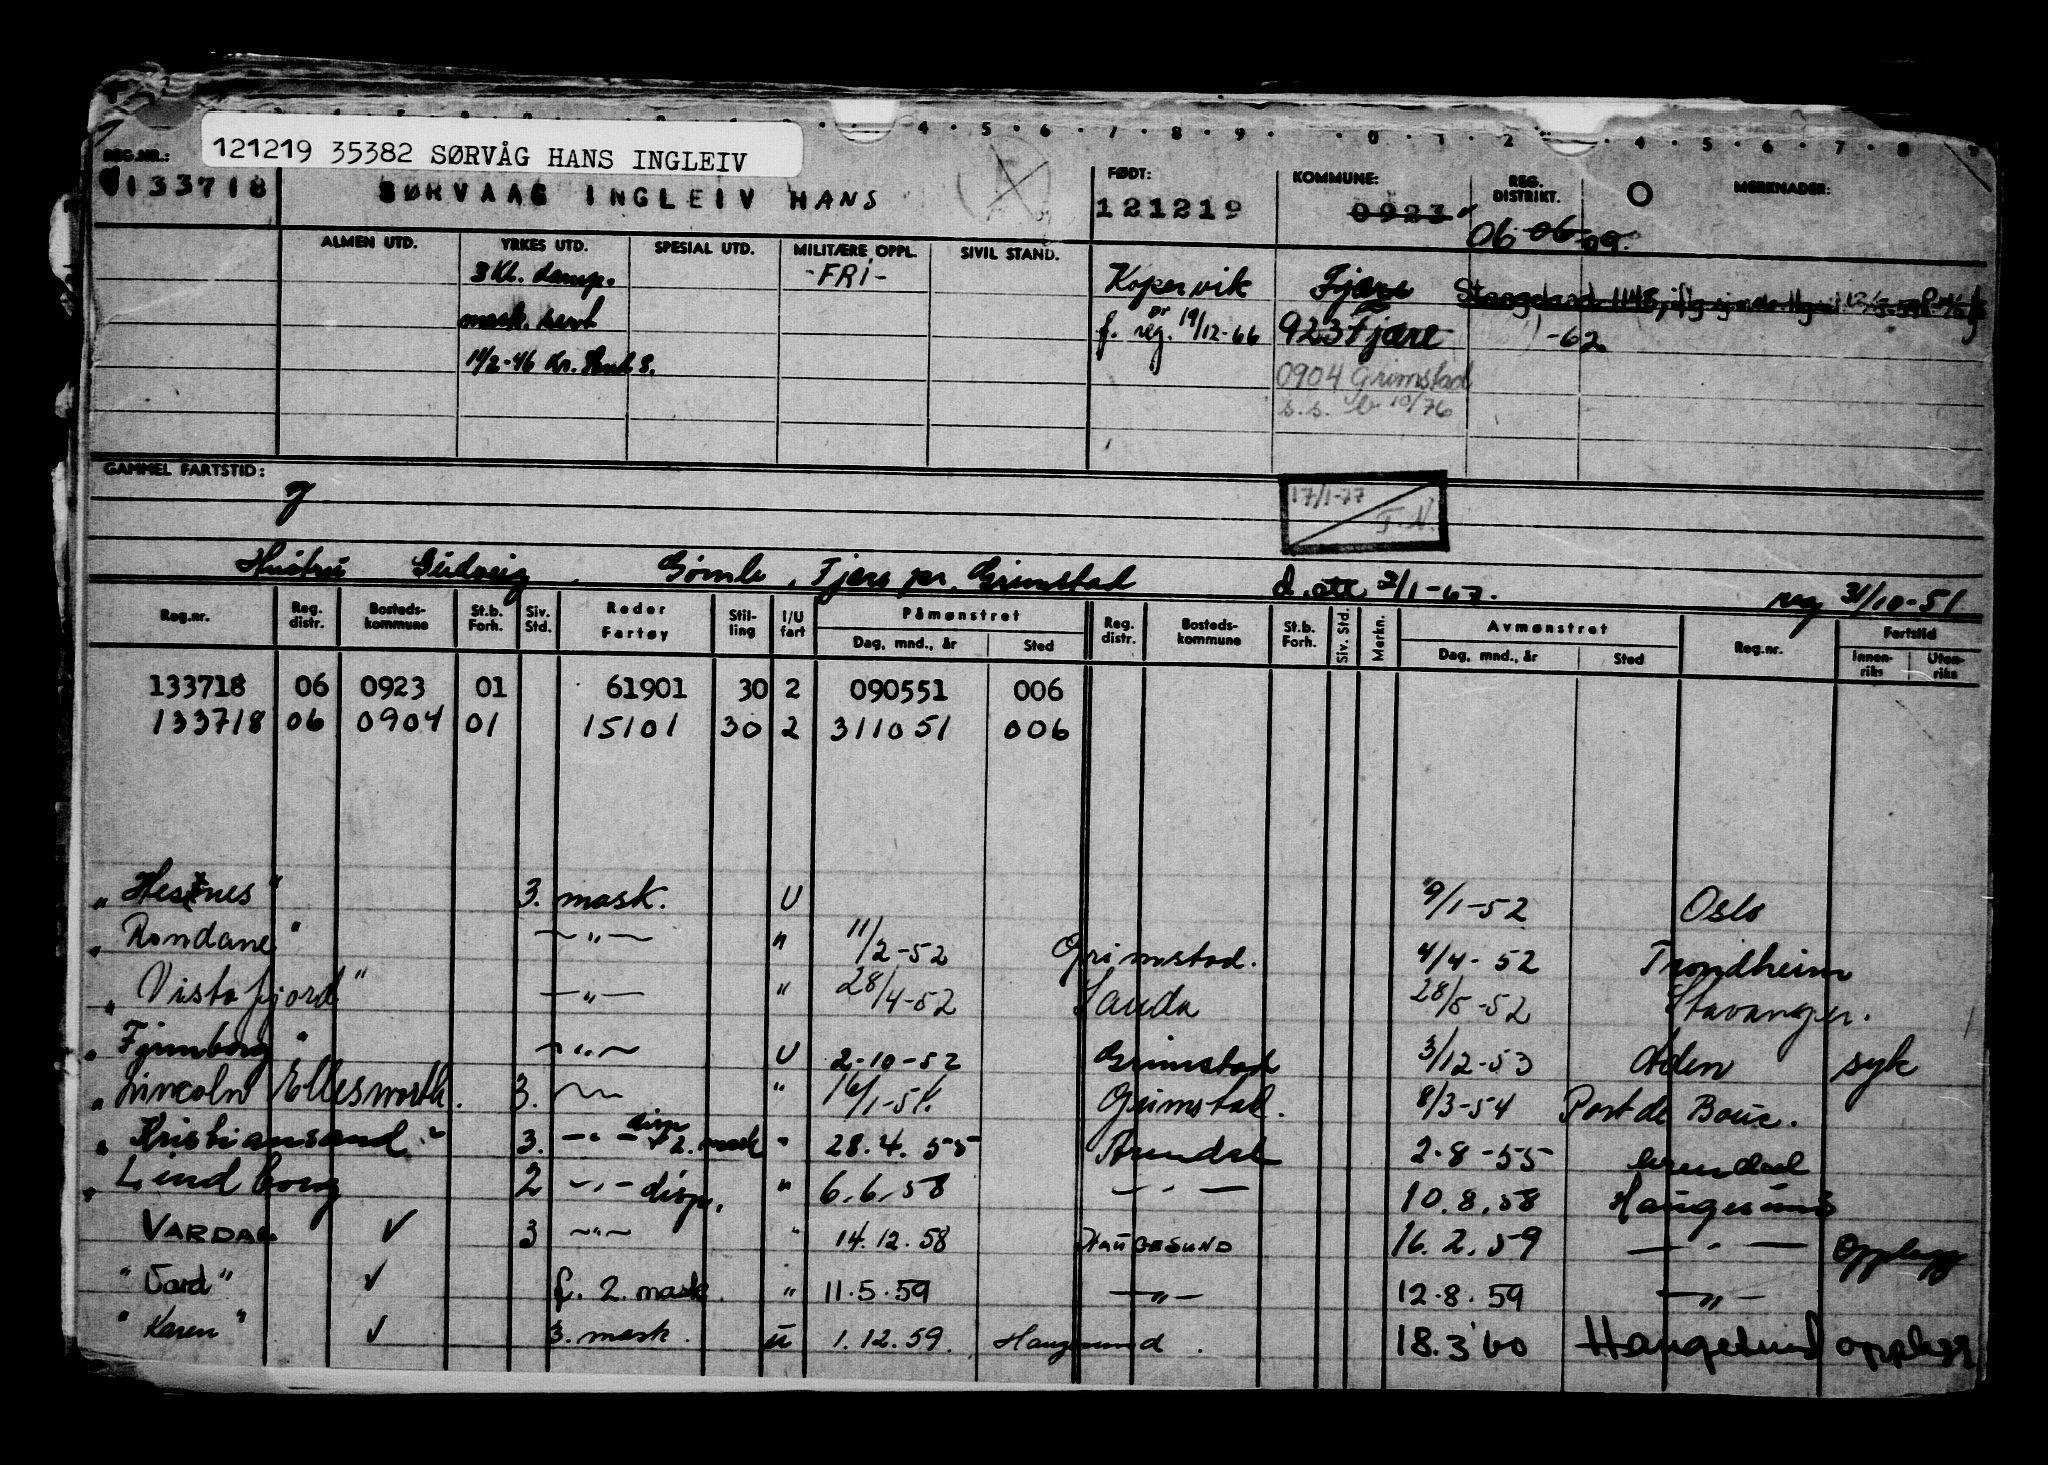 121219 35382 SØRVÅG HANS INGLEIV
REG.NR.: FØDT: KOMMUNE: REG. DISTRIKT. MERKNADER:
133718 SØRVAAG INGLEIV HANS 121219 0923
06 06 09.
ALMEN UTD. YRKES UTD. SPESIAL UTD. MILITÆRE OPPL. SIVIL STAND.
3 Kl. damp. -FRI- Kopervik Fjære
mask. sert f. reg. 19/12-66 923 Fjære -62
11/2-46 Kr. Sand S. 0904 Grimstad
s.s. 10/76
GAMMEL FARTSTID:
17/1-77
T.N.
Hustru Gudveig, Gømle, Fjære pr. Grimstad d. att 2/1-67. reg 31/10-51
Reg.nr. Reg. distr. Bosteds-kommune St.b. Forh. Siv. Std. Reder Fartøy Stil-ling I/U fart Påmønstret Reg. distr. Bosteds-kommune St.b. Forh. Siv. Std. Merkn. Avmønstret Reg.nr. Fartstid
Dag, mnd., år Sted Dag, mnd., år Sted Innen-riks Uten-riks
133718 06 0923 01 61901 30 2 090551 006
133718 06 0904 01 15101 30 2 311051 006
"Hesnes" 3. mask. U 9/1-52 Oslo
"Rondane" —"— " 11/2-52 Grimstad. 4/4-52 Trondheim
"Vistafjord" —"— " 28/4-52 Sauda 28/5-52 Stavanger.
"Fjernborg" —"— U 2-10-52 Grimstad 3/12-53 Aden syk
"Lincoln Ellesworth. 3. " 16/1-54. Grimstad. 8/3-54 Port de Bouc.
"Kristiansand" 3. —"— disp 2. mask " 28.4.55 Arendal 2-8-55 Arendal
"Lindborg 2 —"— disp. " 6.6.58 —"— 10.8.58 Haugesund
VARDAL ✓ 3 —"— " 14.12.58 HAUGESUND 16.2.59 —"— Opplagg
"Vard" ✓ f. 2. mask. " 11.5.59 —"— 12.8.59 —"—
"Karen" ✓ 3. mask. U 1.12.59. Haugesund. 18.3 60 Haugesund opplagg